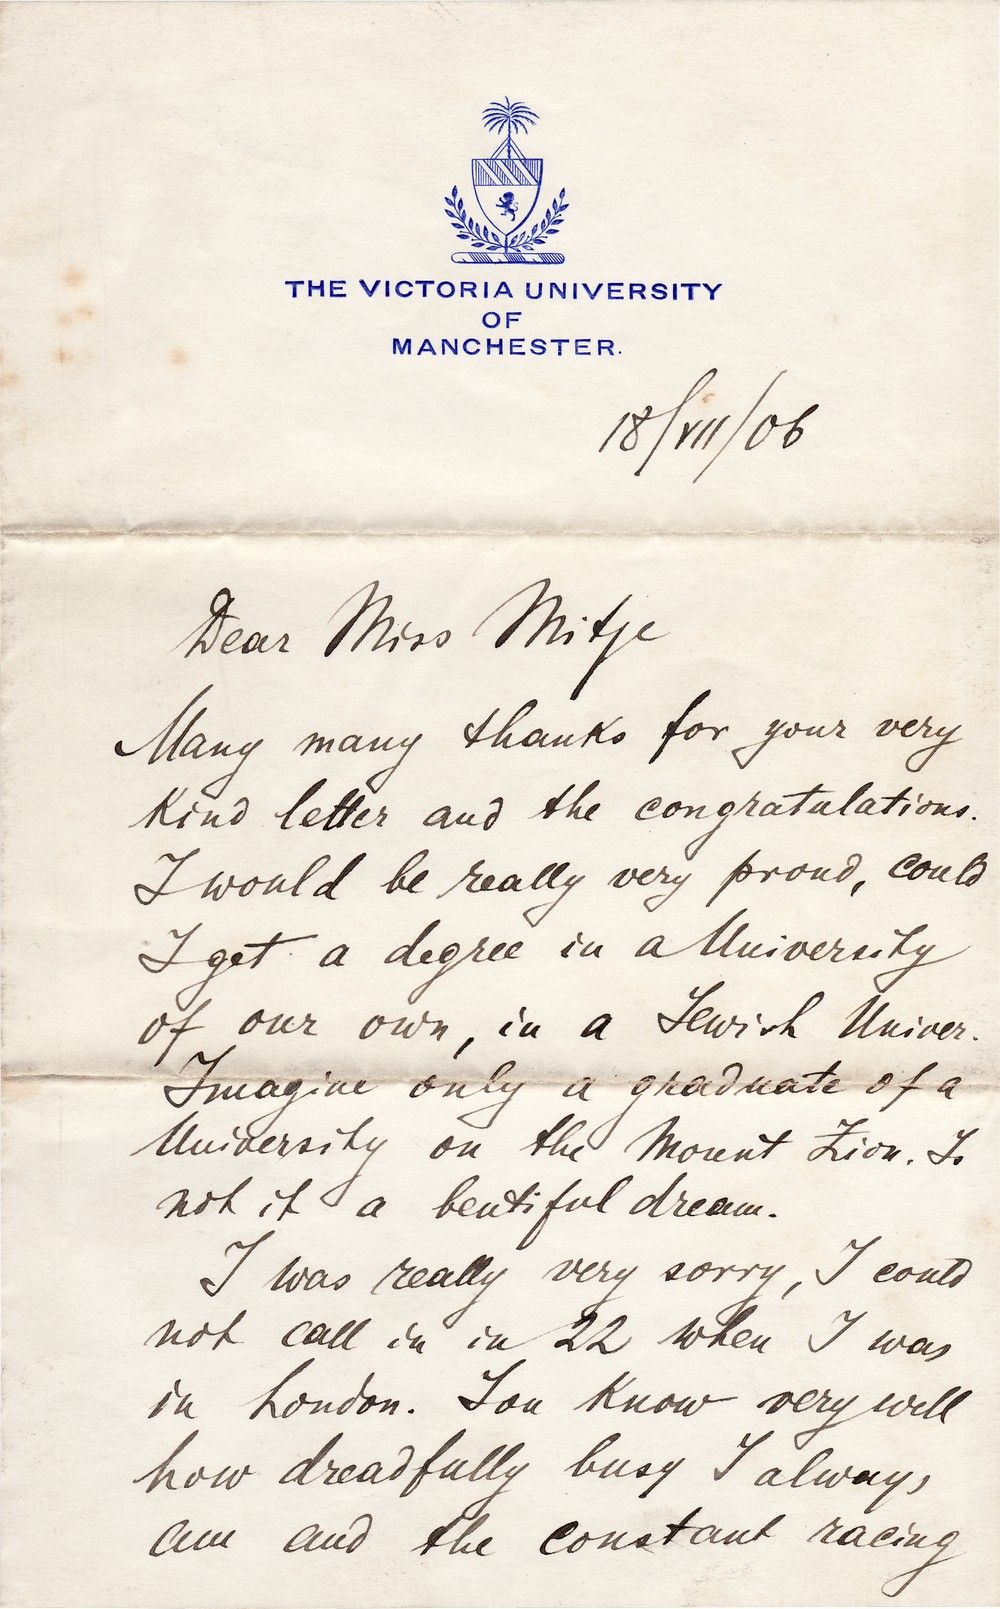 THE VICTORIA UNIVERSITY
OF
MANCHESTER.
18/VII/06
Dear Miss Mitje
Many many thanks for your very
kind letter and the congratulations.
I would be really very proud, could
I get a degree in a University
of our own, in a Jewish Univer.
Imagine only a graduate of a
University on the Mount Zion. Is
not it a beutiful dream.
I was really very sorry, I could
not call in in 22 when I was
in London. You know very well
how dreadfully busy I always
am and the constant racing